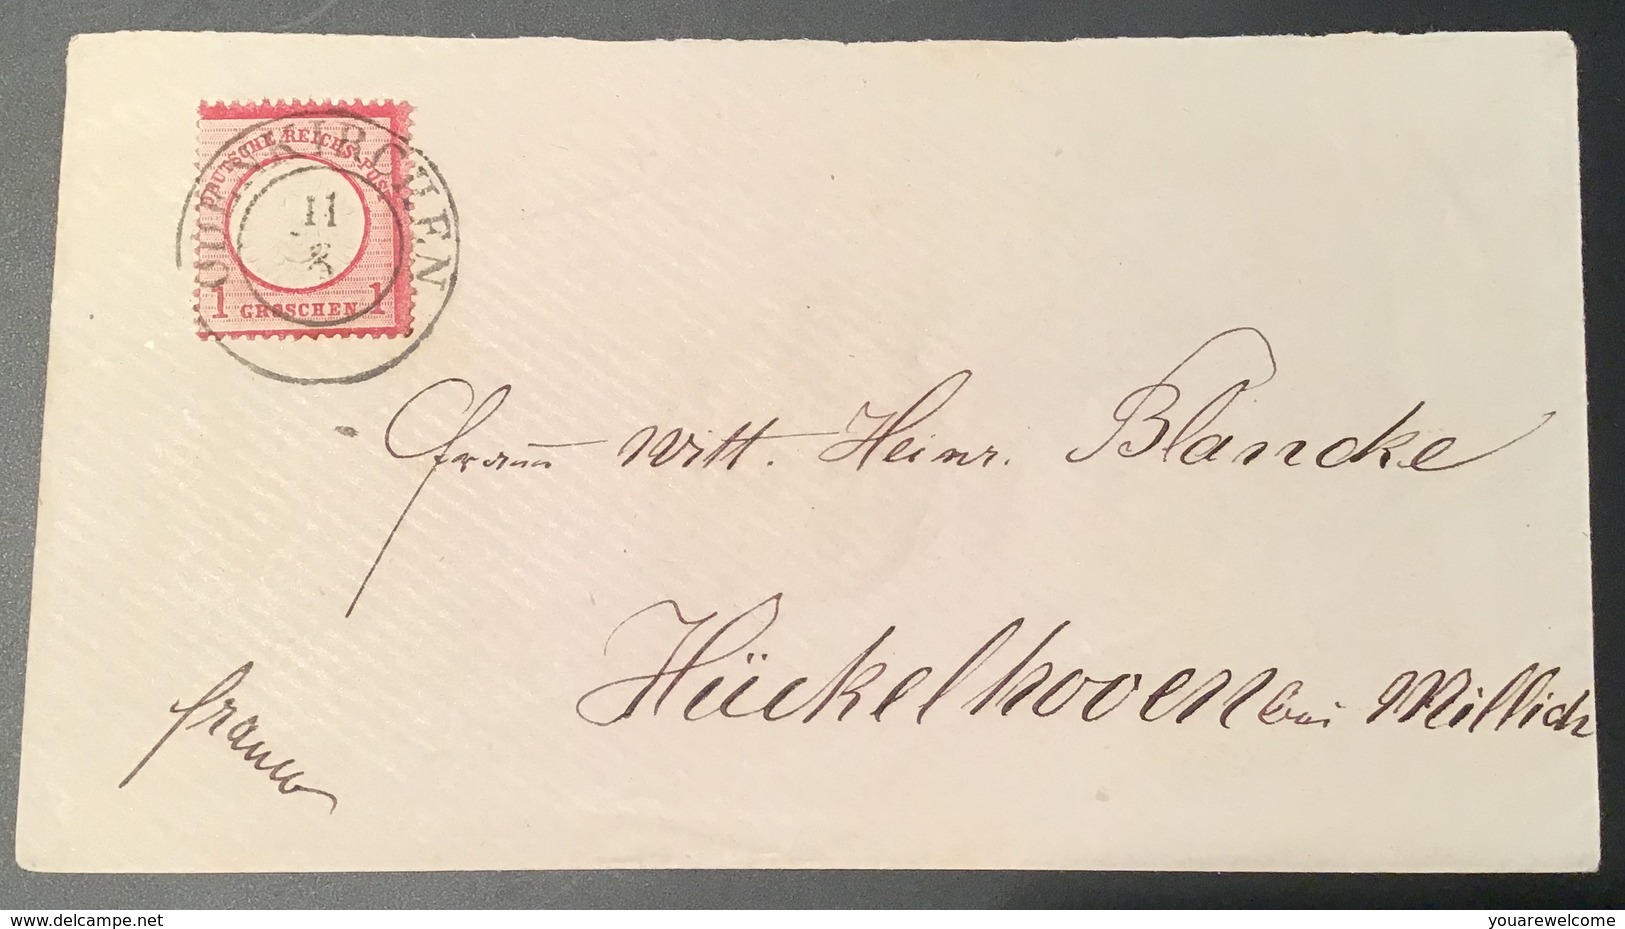 ODENKIRCHEN
DEUTSCHE REICHS-POST
11
1 GROSCHEN 1
Frau Witt. Heinr. Blancke
Hückelhoven bei Millich
franco
delcampe.net
youarewelcome